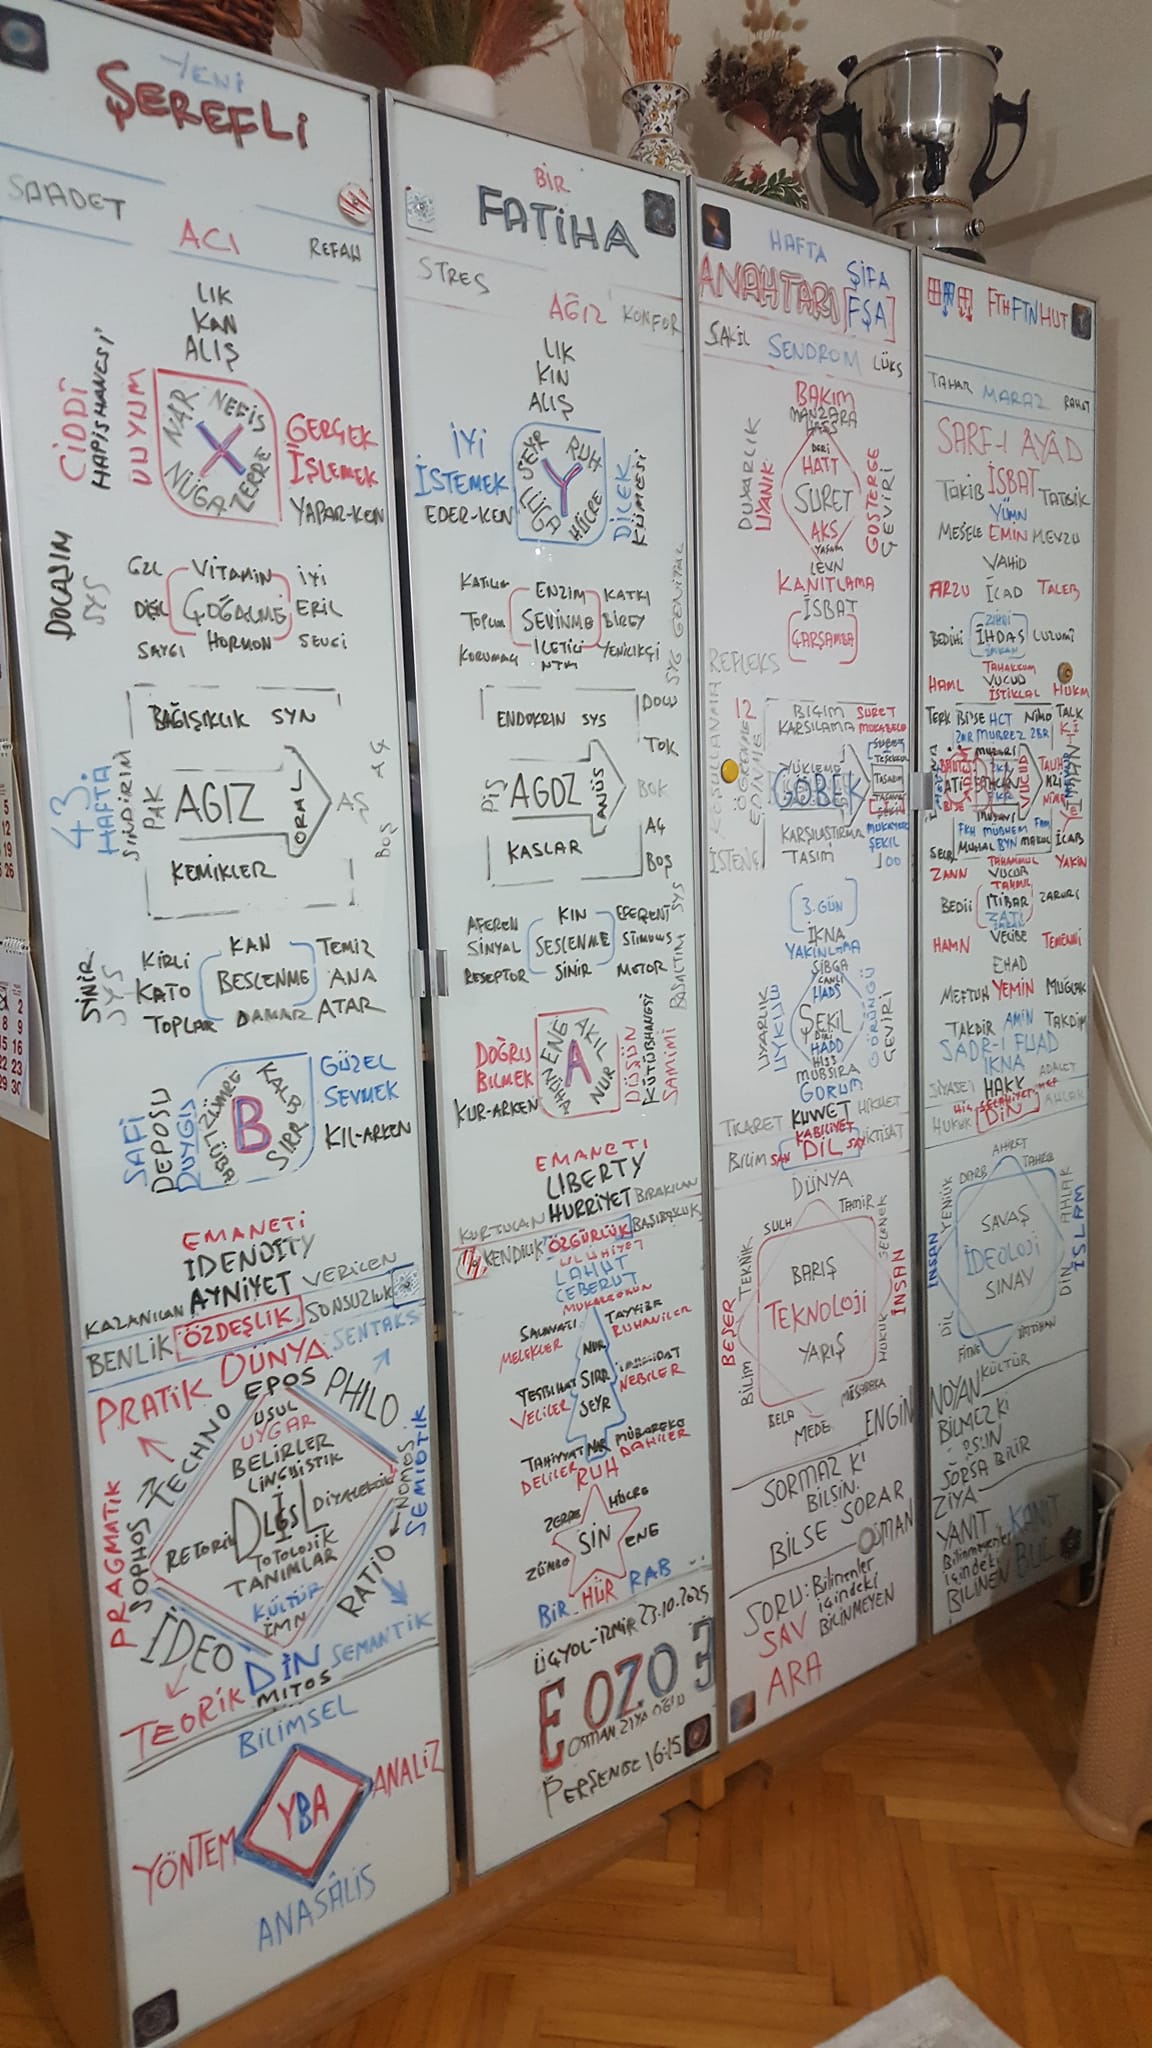 YENİ
ŞEREFLİ
SAADET
ACI
REFAH
LIK
KAN
ALIŞ
CİDDÎ
HAPİSHANESİ
DUYUM
NAR
NEFİS
X
NÜGA
ZERRE
GERÇEK
İŞLEMEK
YAPAR-KEN
DOLAŞIM
SYS
VİTAMİN
İYİ
DİŞİL
ÇOĞALME
ERİL
SAYGI
HORMON
SEVGİ
BAĞIŞIKLIK SYN
43.
HAFTA
SİNDİRİM
PAK
AGIZ
ORAL
AŞ
AÇ
BOŞ
KEMİKLER
SİNİR
SYS
KİRLİ
KAN
TEMİZ
KATO
BESLENME
ANA
TOPLAR
DAMAR
ATAR
SAFİ
DEPOSU
DUYGU
ZÜMRE
KALB
B
LÜBB
SIRR
GÜZEL
SEVMEK
KIL-ARKEN
EMANETİ
IDENDITY
AYNİYET
VERİLEN
KAZANILAN
BENLİK
ÖZDEŞLİK
SONSUZLUK
PRATİK
DÜNYA
SENTAKS
EPOS
PHILO
TECHNO
USUL
UYGAR
BELİRLER
LİNGUİSTİK
PRAGMATİK
SOPHOS
RETORİK
DİYALEKTİK
NOMOS
SEMİOTİK
TOTOLOJİK
TANIMLAR
KÜLTÜR
İMN
RATIO
İDEO
DİN
SEMANTİK
MITOS
TEORİK
BİLİMSEL
YÖNTEM
YBA
ANALİZ
ANASÂLİS
BİR
FATİHA
STRES
AĞIZ
KONFOR
LIK
KIN
ALIŞ
İYİ
İSTEMEK
EDER-KEN
SEYR
RUH
Y
LÜGA
HÜCRE
DİLEK
KÜMESİ
KATILIM
ENZİM
KATKI
TOPLUM
SEVİNME
BİREY
KORUMACI
İLETİCİ
YENİLİKÇİ
NTM
SYG GENİTAL
ENDOKRİN SYS
DOLU
TOK
PİS
AGOZ
ANÜS
BOK
AÇ
KASLAR
BOŞ
AFEREN
KIN
EFERENT
SİNYAL
SESLENME
STİMULUS
RESEPTÖR
SİNİR
MOTOR
BOŞALTIM SYS
DOĞRU
BİLMEK
KUR-ARKEN
ENE
AKIL
A
NÜHA
NUR
DÜŞÜN
KÜTÜBHANESİ
SAMİMİ
EMANETİ
LIBERTY
HÜRRİYET
BIRAKILAN
KURTULAN
KENDİLİK
ÖZGÜRLÜK
BAŞIBOŞLUK
ULÛHİYET
LAHUT
CEBERUT
MUKARREBUN
SALAVATI
TAYYİBE
MELEKLER
NUR
RUHANİLER
TESBİHAT
SIRR
VELİLER
NEBİLER
SEYR
TAHİYYAT
NAR
MÜBAREKE
DELİLER
DAHİLER
RUH
ZERRE
HÜCRE
SİN
ENE
ZÜMRE
BİR
HÜR
RAB
ÜÇYOL-İZMİR 23.10.2025
E OZO 3
OSMAN ZİYA OĞLU
PERŞENBE 16:15
HAFTA
ANAHTARI
ŞİFA
[FŞA]
SAKİL
SENDROM
LÜKS
BAKIM
MANZARA
DUYARLIK
UYANIK
DERİ
HATT
SURET
AKS
YAŞAM
LEVN
GÖSTERGE
ÇEVİRİ
KANITLAMA
İSBAT
ÇARŞAMBA
REFLEKS
12
BİÇİM
SURET
KARŞILAMA
MUKABELE
ÖĞRENME
EDİNME
YÜKLEME
GÖBEK
KARŞILAŞTIRMA
ŞEKİL
TASIM
JOO
3.GÜN
İKNA
YAKINLAMA
SIBGA
CANLI
HADS
UYARLIK
UYKULU
ŞEKİL
DİRİ
HADD
HİSS
MUBSIRA
GÖRÜM
GÖRÜNGÜ
ÇEVİRİ
TİCARET
KUVVET
HİKMET
KABİLİYET
BİLİM
SAN
DİL
SAY
İKTİSAT
DÜNYA
SULH
TAMİR
TEKNİK
BARIŞ
SELENEK
BEŞER
TEKNOLOJİ
İNSAN
YARIŞ
HUKUK
BİLİM
BELA
MÜSABAKA
MEDE
ENGİN
SORMAZ Kİ
BİLSİN.
BİLSE SORAR
OSMAN
SORU: Bilinenler
içindeki
BİLİNMEYEN
SAV
ARA
FTH FTN HUT
TAHAR
MARAZ
RAHAT
SARF-I AYÂD
TAKİB
İSBAT
TATBİK
YÜMN
MESELE
EMİN
MEVZU
VAHİD
ARZU
İCAD
TALEB
ZİHNİ
BEDİHİ
İHDAS
LUZUMÎ
İMKAN
TAHAKKUM
HAML
VUCUD
HUKM
İSTİKLAL
İCAB
ZANN
TAHAMMUL
YAKİN
VUCUB
TAHMİL
BEDİİ
İTİBAR
ZARURİ
ZATİ
HAMN
VECİBE
TEMENNİ
EHAD
MEFTUH
YEMİN
MUĞLAK
TAKDİR
AMİN
TAKDİM
SADR-I FUAD
İKNA
SİYASET
HAKK
ADALET
SELAHİYET
HUKUK
DİN
AHLAK
AHİRET
DARB
TAHRİB
YENİLİK
SAVAŞ
AHLAK
İNSAN
İDEOLOJİ
İSLAM
SINAV
DİN
DİL
FİTNE
İMTİHAN
KÜLTÜR
NOYAN
BİLMEZ Kİ
ÖSÜN
SORSA BİLİR
ZİYA
YANIT
KANIT
Bilinmeyenler
içindeki
BUL
BİLİNEN